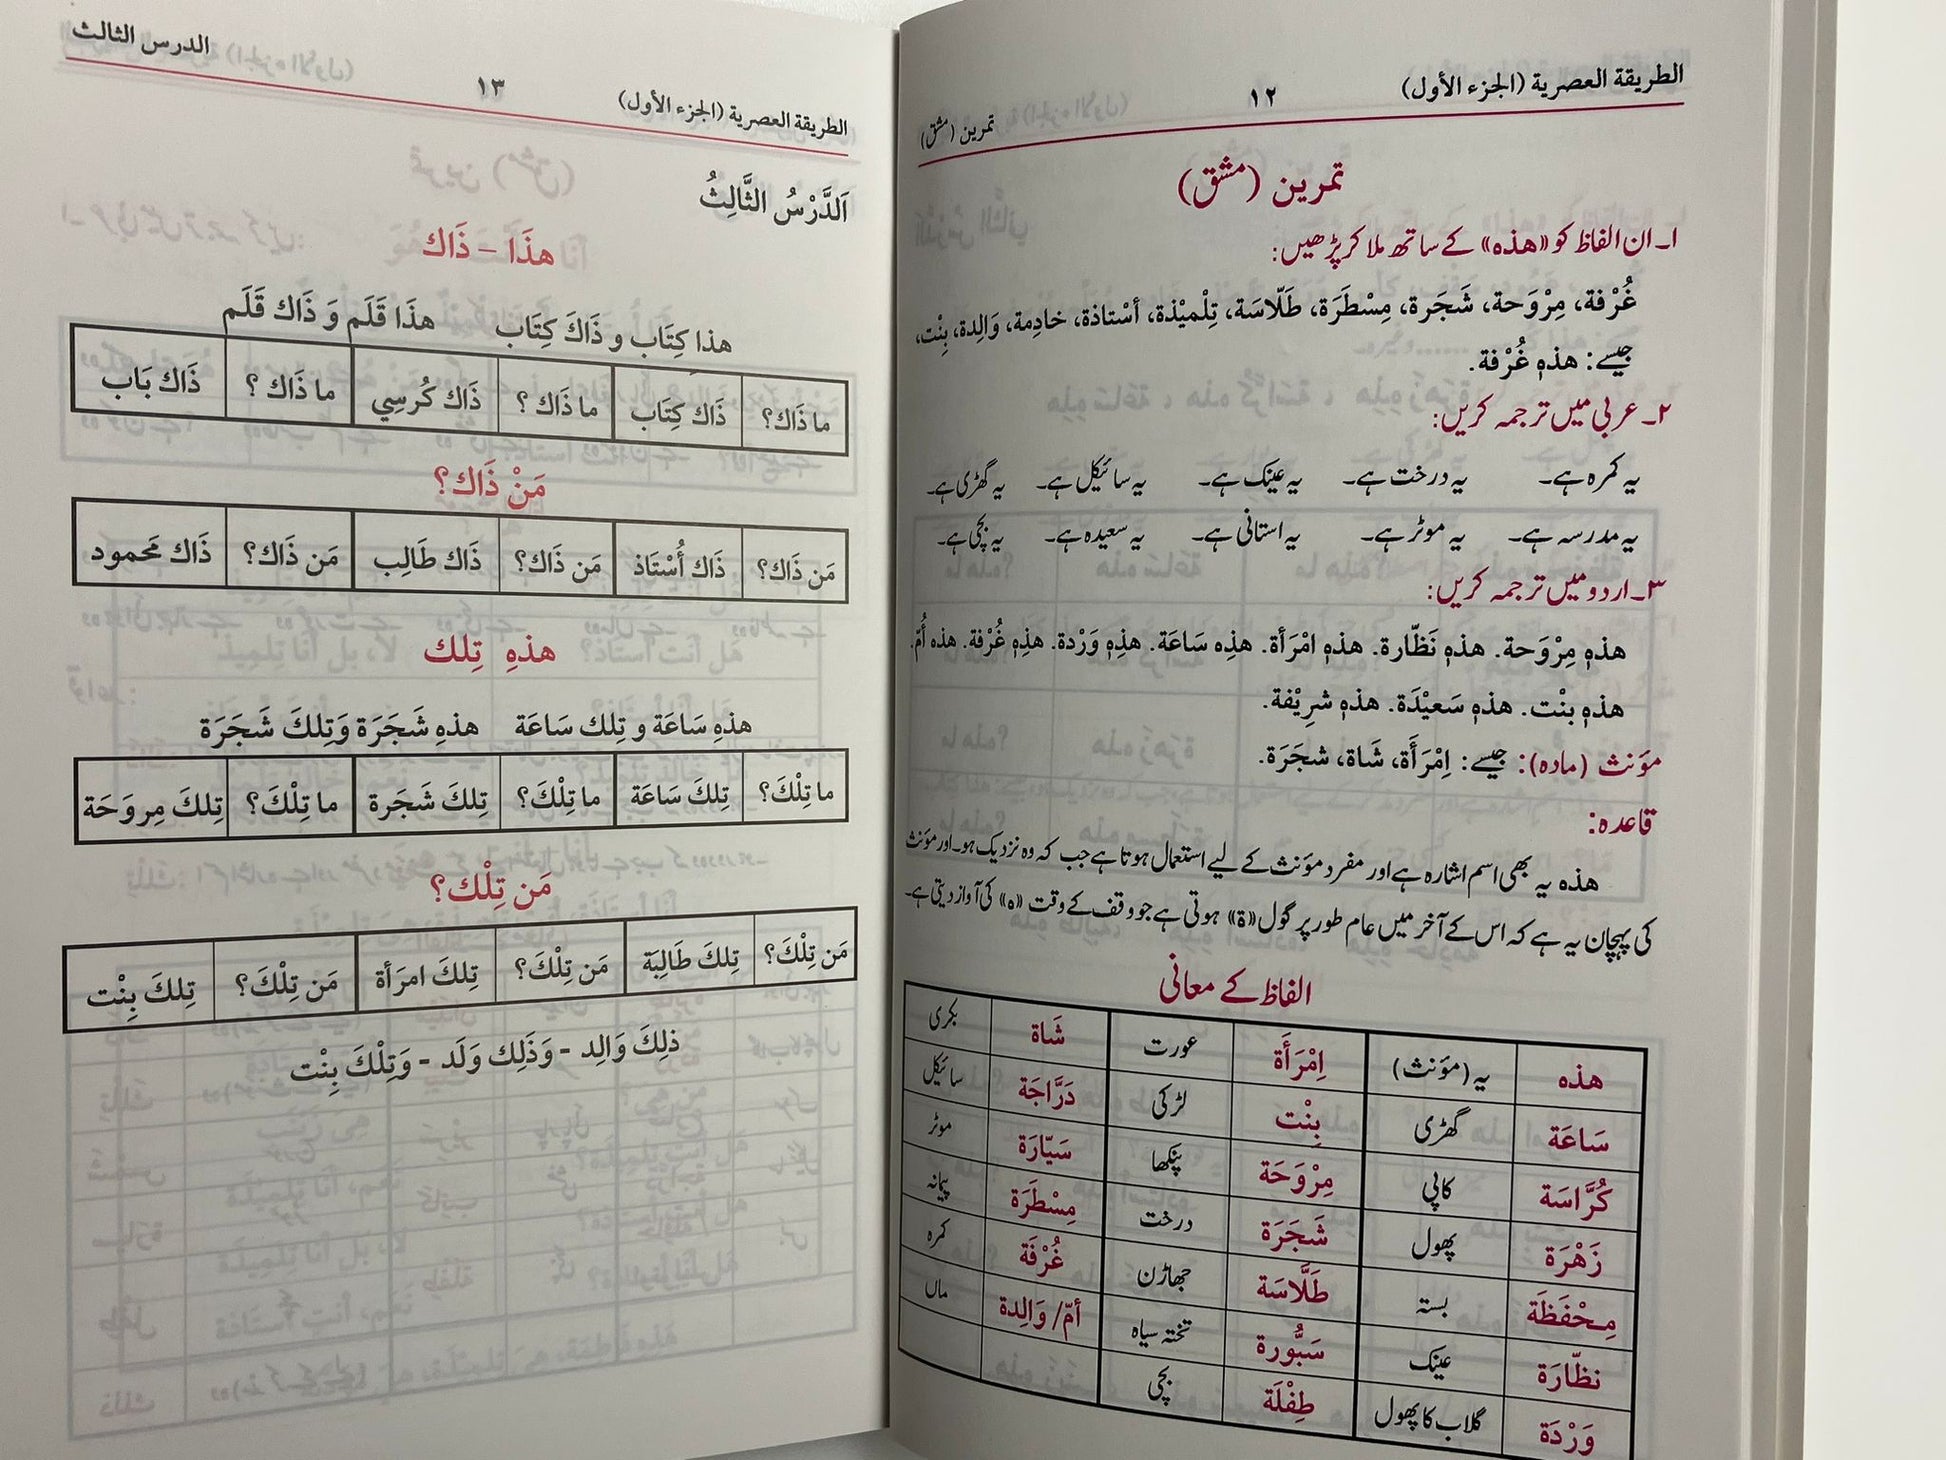 الطريقة العصرية (الجزء الأول) ١٢ تمرين (مشق)
تمرين (مشق)
۱۔ ان الفاظ کو «هذه» کے ساتھ ملا کر پڑھیں:
غُرْفة، مِرْوَحة، شَجَرة، مِسْطَرَة، طَلّاسَة، تِلْمِيْذة، أسْتاذة، خادِمة، وَالِدة، بِنْت،
جیسے: هذهٖ غُرْفة.
۲۔ عربی میں ترجمہ کریں:
یہ کمرہ ہے۔ یہ درخت ہے۔ یہ عینک ہے۔ یہ سائیکل ہے۔ یہ گھڑی ہے۔
یہ مدرسہ ہے۔ یہ موٹر ہے۔ یہ استانی ہے۔ یہ سعیدہ ہے۔ یہ بچی ہے۔
۳۔ اردو میں ترجمہ کریں:
هذهٖ مِرْوَحة. هذهٖ نَظّارة. هذهٖ امْرَأة. هذِه سَاعَة. هذِهٖ وَرْدة. هذِهٖ غُرْفة. هذه أُمّ.
هذهٖ بنْت. هذهٖ سَعيْدَة. هذهٖ شرِيْفة.
مؤنث (مادہ): جیسے: اِمْرَأَة، شَاة، شجَرَة.
قاعدہ:
هذه یہ بھی اسم اشارہ ہے اور مفرد مؤنث کے لیے استعمال ہوتا ہے جب کہ وہ نزدیک ہو۔ اور مؤنث
کی پہچان یہ ہے کہ اس کے آخر میں عام طور پر گول «ة» ہوتی ہے جو وقف کے وقت «ہ» کی آواز دیتی ہے۔
الفاظ کے معانی
هذه یہ (مؤنث) اِمْرَأَة عورت شَاة بکری
سَاعَة گھڑی بِنْت لڑکی دَرَّاجَة سائیکل
كُرَّاسَة کاپی مِرْوَحَة پنکھا سَيّارَة موٹر
زَهْرَة پھول شَجَرَة درخت مِسْطَرَة پیمانہ
مِحْفَظَة بستہ طَلَّاسَة جھاڑن غُرْفَة کمرہ
نظّارَة عینک سَبُّورة تختہ سیاہ أمّ/ وَالِدة ماں
وَرْدَة گلاب کا پھول طِفْلَة بچی
الطريقة العصرية (الجزء الأول) ١٣ الدرس الثالث
اَلدَّرْسُ الثَّالِثُ
هذَا – ذَاك
هذا كِتَاب و ذَاكَ كِتَاب هذَا قَلَم وَ ذَاك قَلَم
ما ذَاك؟ ذَاك كِتَاب ما ذَاك ؟ ذَاك كُرسِي ما ذَاك ؟ ذَاك بَاب
مَنْ ذَاك؟
مَن ذَاك؟ ذَاك أُسْتَاذ مَن ذَاك؟ ذَاك طَالِب مَن ذَاك؟ ذَاك مَحمود
هذهِ تِلك
هذهِ سَاعَة و تِلك سَاعَة هذهِ شَجَرَة وَتِلكَ شَجَرَة
ما تِلْكَ؟ تِلكَ سَاعَة ما تِلْكَ؟ تِلكَ شَجَرة ما تِلْكَ؟ تِلكَ مِروَحَة
مَن تِلْك؟
مَن تِلْكَ؟ تِلكَ طَالِبَة مَن تِلْكَ؟ تِلكَ امرَأة مَن تِلْكَ؟ تِلكَ بِنْت
ذلِكَ وَالِد - وَذَلِك وَلَد - وَتِلْكَ بِنْت